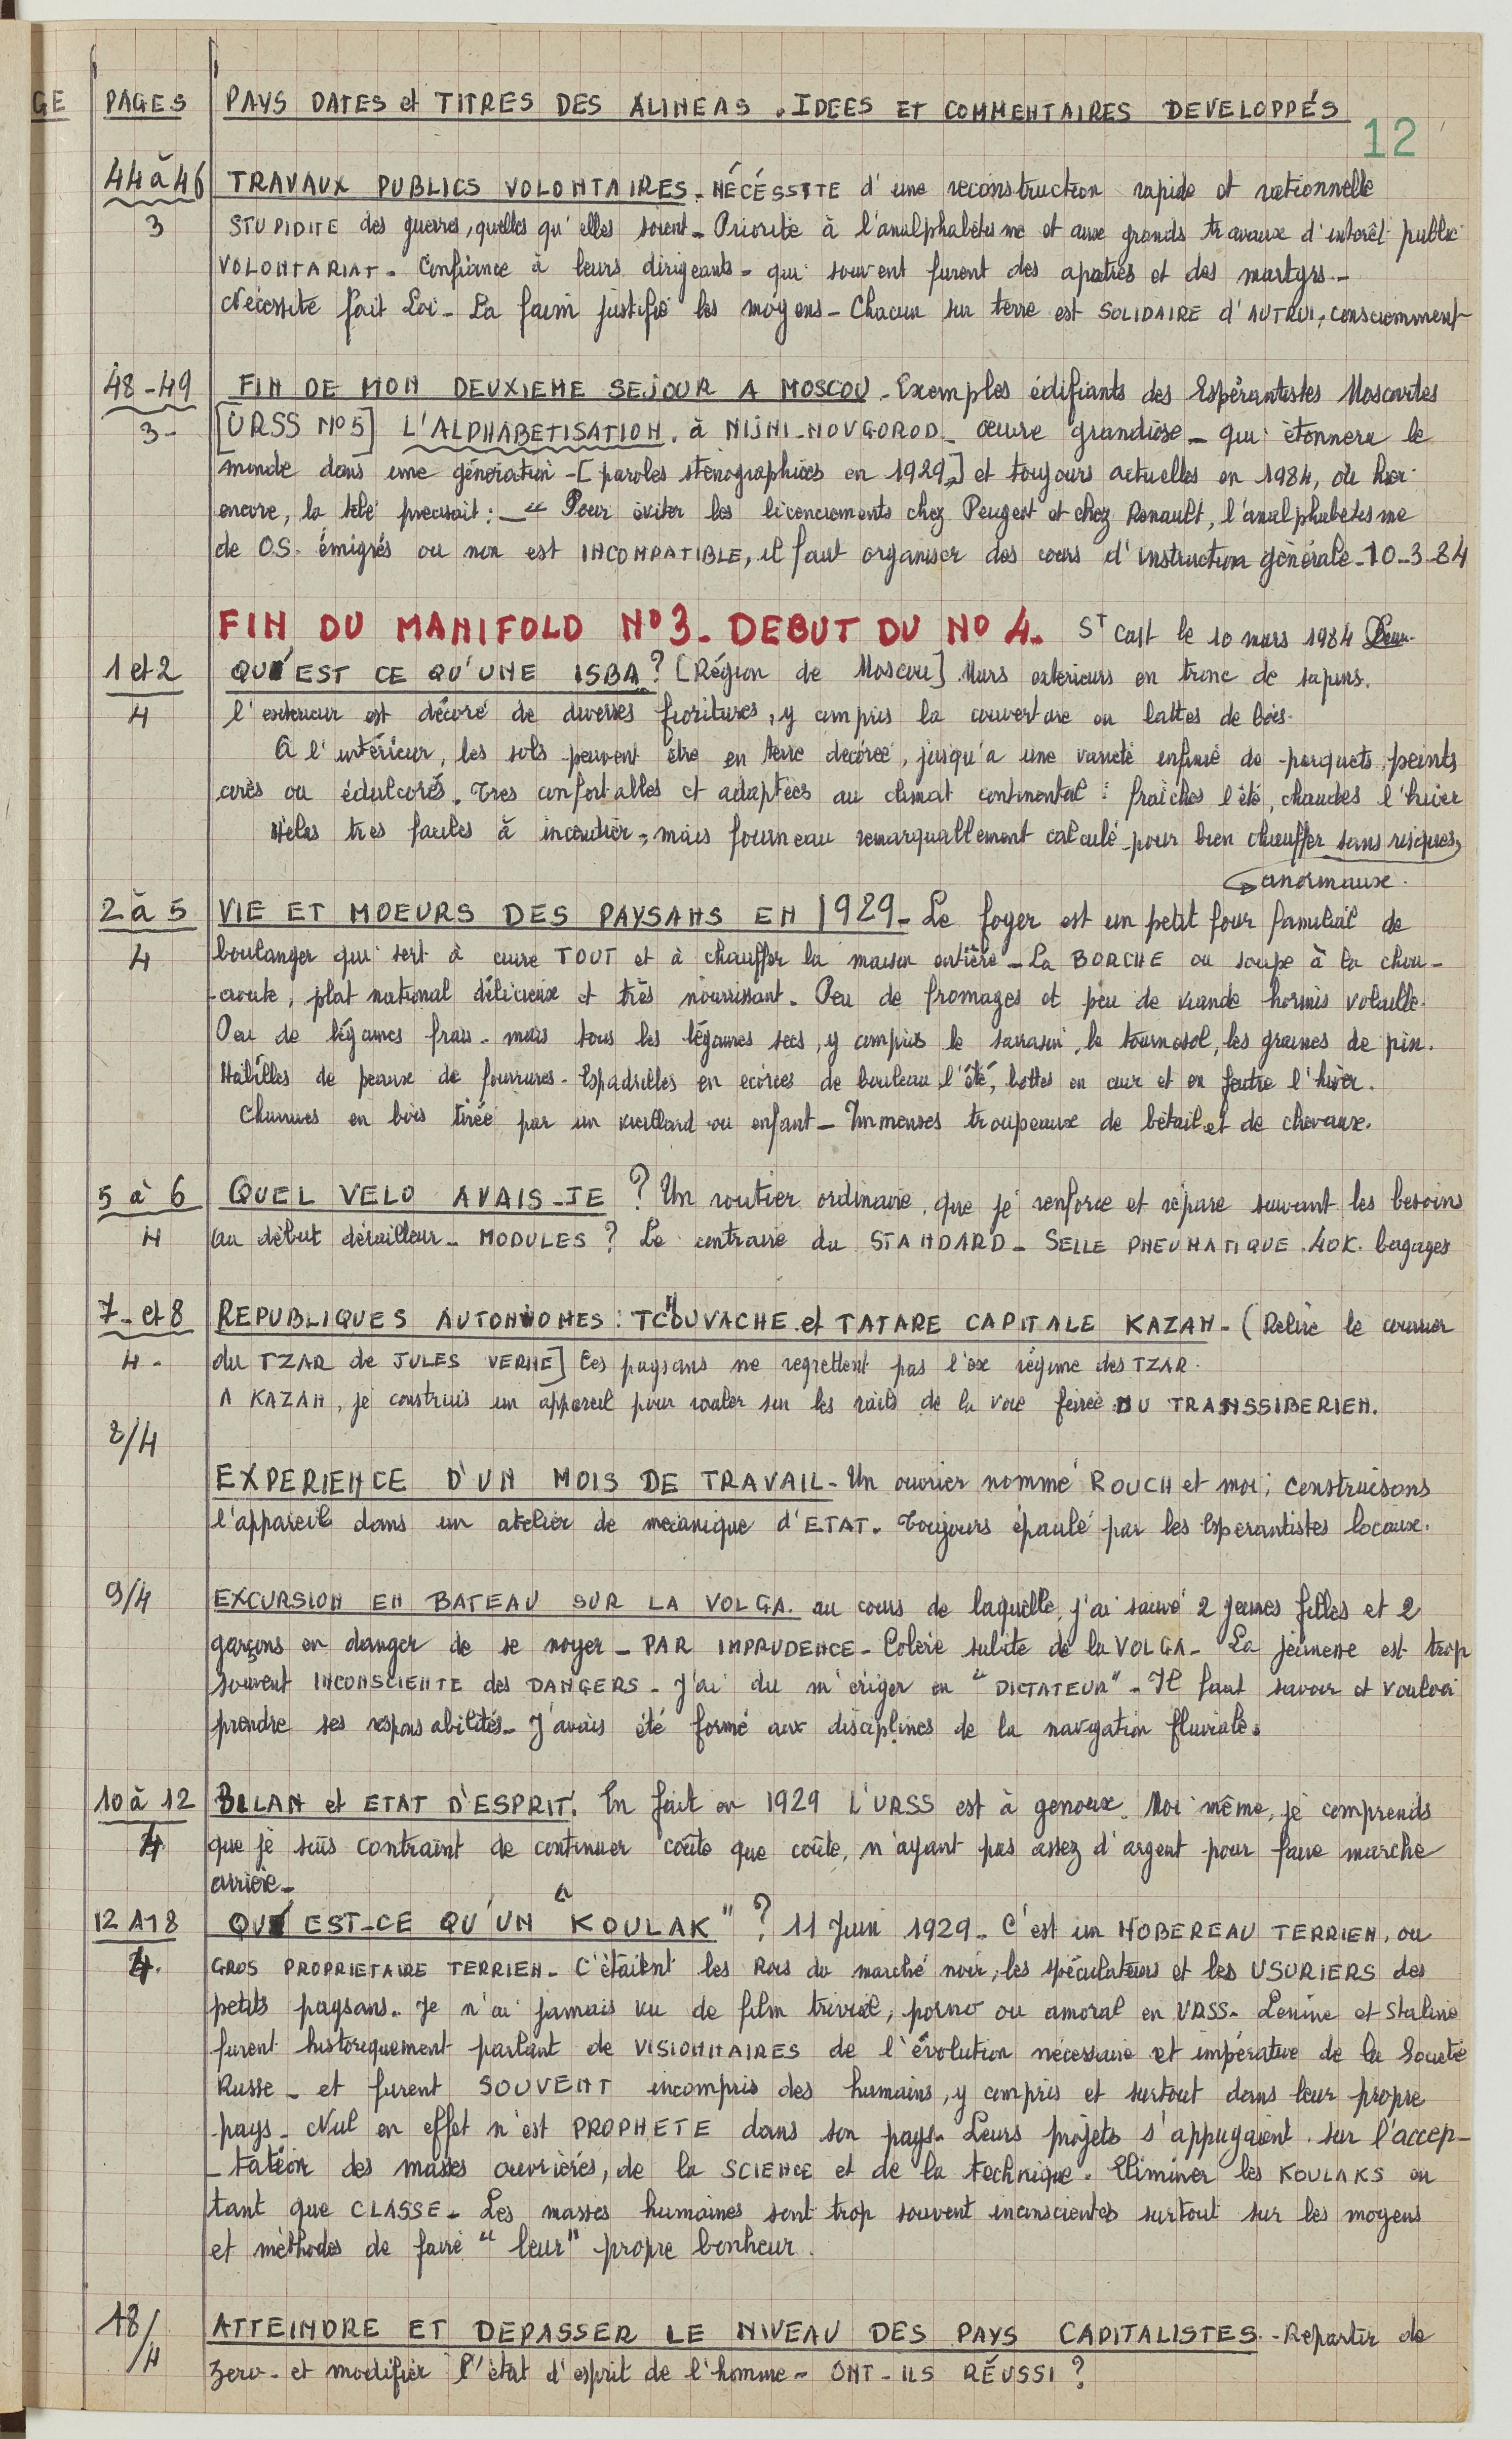 GE PAGES PAYS DATES et TITRES DES ALINEAS . IDEES ET COMMENTAIRES DEVELOPPÉS
12
44 à 46 TRAVAUX PUBLICS VOLONTAIRES - NÉCÉSSITE d'une reconstruction rapide et rationnelle
3 STUPIDITE des guerres, quelles qu'elles soient - Priorité à l'analphabétisme et aux grands travaux d'intérêt public
VOLONTARIAT - Confiance à leurs dirigeants - qui souvent furent des apotres et des martyrs -
Nécessité fait Loi - La faim justifie les moyens - Chacun sur terre est SOLIDAIRE d'AUTRUI, consciemment
48 - 49 FIN DE MON DEUXIEME SEJOUR A MOSCOU - Exemples édifiants des Espérantistes Moscovites
3 - [URSS N°5] L'ALPHABETISATION. à NIJNI-NOVGOROD - œuvre grandiose - qui étonnera le
monde dans une génération - [paroles sténographiées en 1929,] et toujours actuelles en 1984, où hier
encore, la télé precisait : - " Pour éviter les licenciements chez Peugeot et chez Renault, l'analphabétisme
de O.S. émigrés ou non est INCOMPATIBLE, il faut organiser des cours d'instruction générale - 10-3-84
FIN DU MANIFOLD N°3 - DEBUT DU N° 4. St Cast le 10 mars 1984
1 et 2 QU'EST CE QU'UNE ISBA ? [Région de Moscou] Murs extérieurs en tronc de sapins.
4 l'exterieur est décoré de diverses fioritures, y compris la couverture ou lattes de bois.
A l'intérieur, les sols peuvent être en terre décorée, jusqu'a une varieté infinie de parquets, peints
cirés ou édulcorés. Tres confortables et adaptées au climat continental : fraîches l'été, chaudes l'hiver
Hélas tres faciles à incendier, mais fourneau remarquablement calculé pour bien chauffer sans risques
anormaux.
2 à 5 VIE ET MOEURS DES PAYSANS EN 1929 - Le foyer est un petit four familial de
4 boulanger qui sert à cuire TOUT et à chauffer la maison entière - La BORCHE ou soupe à la chou-
-croute, plat national délicieux et très nourrissant. Peu de fromages et peu de viande hormis volaille.
Peu de légumes frais - mais tous les légumes secs, y compris le sarrasin, le tournesol, les graines de pin.
Habillés de peaux de fourrures - Espadrilles en ecorces de bouleau l'été, bottes en cuir et en feutre l'hiver.
Charrues en bois tirée par un vieillard ou enfant - Immenses troupeaux de bétail et de chevaux.
5 à 6 QUEL VELO AVAIS-JE ? Un routier ordinaire, que je renforce et répare suivant les besoins
4 au début dérailleur - MODULES ? Le contraire du STANDARD - SELLE PNEUMATIQUE . 40K. bagages
7 - et 8 REPUBLIQUES AUTONOMES : TCHOUVACHE et TATARE CAPITALE KAZAN - (Relire le courrier
4 - du TZAR de JULES VERNE] Ces paysans ne regrettent pas l'ex régime des TZAR.
A KAZAN, je construis un appareil pour rouler sur les rails de la voie ferrée DU TRANSSIBERIEN.
8/4
EXPERIENCE D'UN MOIS DE TRAVAIL - Un ouvrier nommé ROUCH et moi, construisons
l'appareil dans un atelier de mécanique d'ETAT. Toujours épaulé par les Esperantistes locaux.
9/4 EXCURSION EN BATEAU SUR LA VOLGA. au cours de laquelle, j'ai sauvé 2 jeunes filles et 2
garçons en danger de se noyer - PAR IMPRUDENCE - Colère subite de la VOLGA - La jeunesse est trop
souvent INCONSCIENTE des DANGERS - J'ai du m'ériger en "DICTATEUR" - Il faut savoir et vouloir
prendre ses responsabilités - J'avais été formé aux disciplines de la navigation fluviale.
10 à 12 BILAN et ETAT D'ESPRIT. En fait en 1929 L'URSS est à genoux. Moi même, je comprends
4 que je suis contraint de continuer coûte que coûte, n'ayant pas assez d'argent pour faire marche
arrière -
12 A 18 QU'EST-CE QU'UN "KOULAK" ? 11 Juin 1929 - C'est un HOBEREAU TERRIEN, ou
4. GROS PROPRIETAIRE TERRIEN - C'étaient les Rois du marché noir, les spéculateurs et les USURIERS des
petits paysans. Je n'ai jamais vu de film trivial, porno ou amoral en URSS. Lenine et Staline
furent historiquement parlant de VISIONNAIRES de l'évolution nécessaire et impérative de la Société
Russe - et furent SOUVENT incompris des humains, y compris et surtout dans leur propre
pays - Nul en effet n'est PROPHETE dans son pays. Leurs projets s'appuyaient sur l'accep-
-tation des masses ouvrières, de la SCIENCE et de la technique. Eliminer les KOULAKS en
tant que CLASSE - Les masses humaines sont trop souvent inconscientes surtout sur les moyens
et méthodes de faire "leur" propre bonheur.
18/4 ATTEINDRE ET DEPASSER LE NIVEAU DES PAYS CAPITALISTES - Repartir de
zero - et modifier l'état d'esprit de l'homme - ONT-ILS RÉUSSI ?